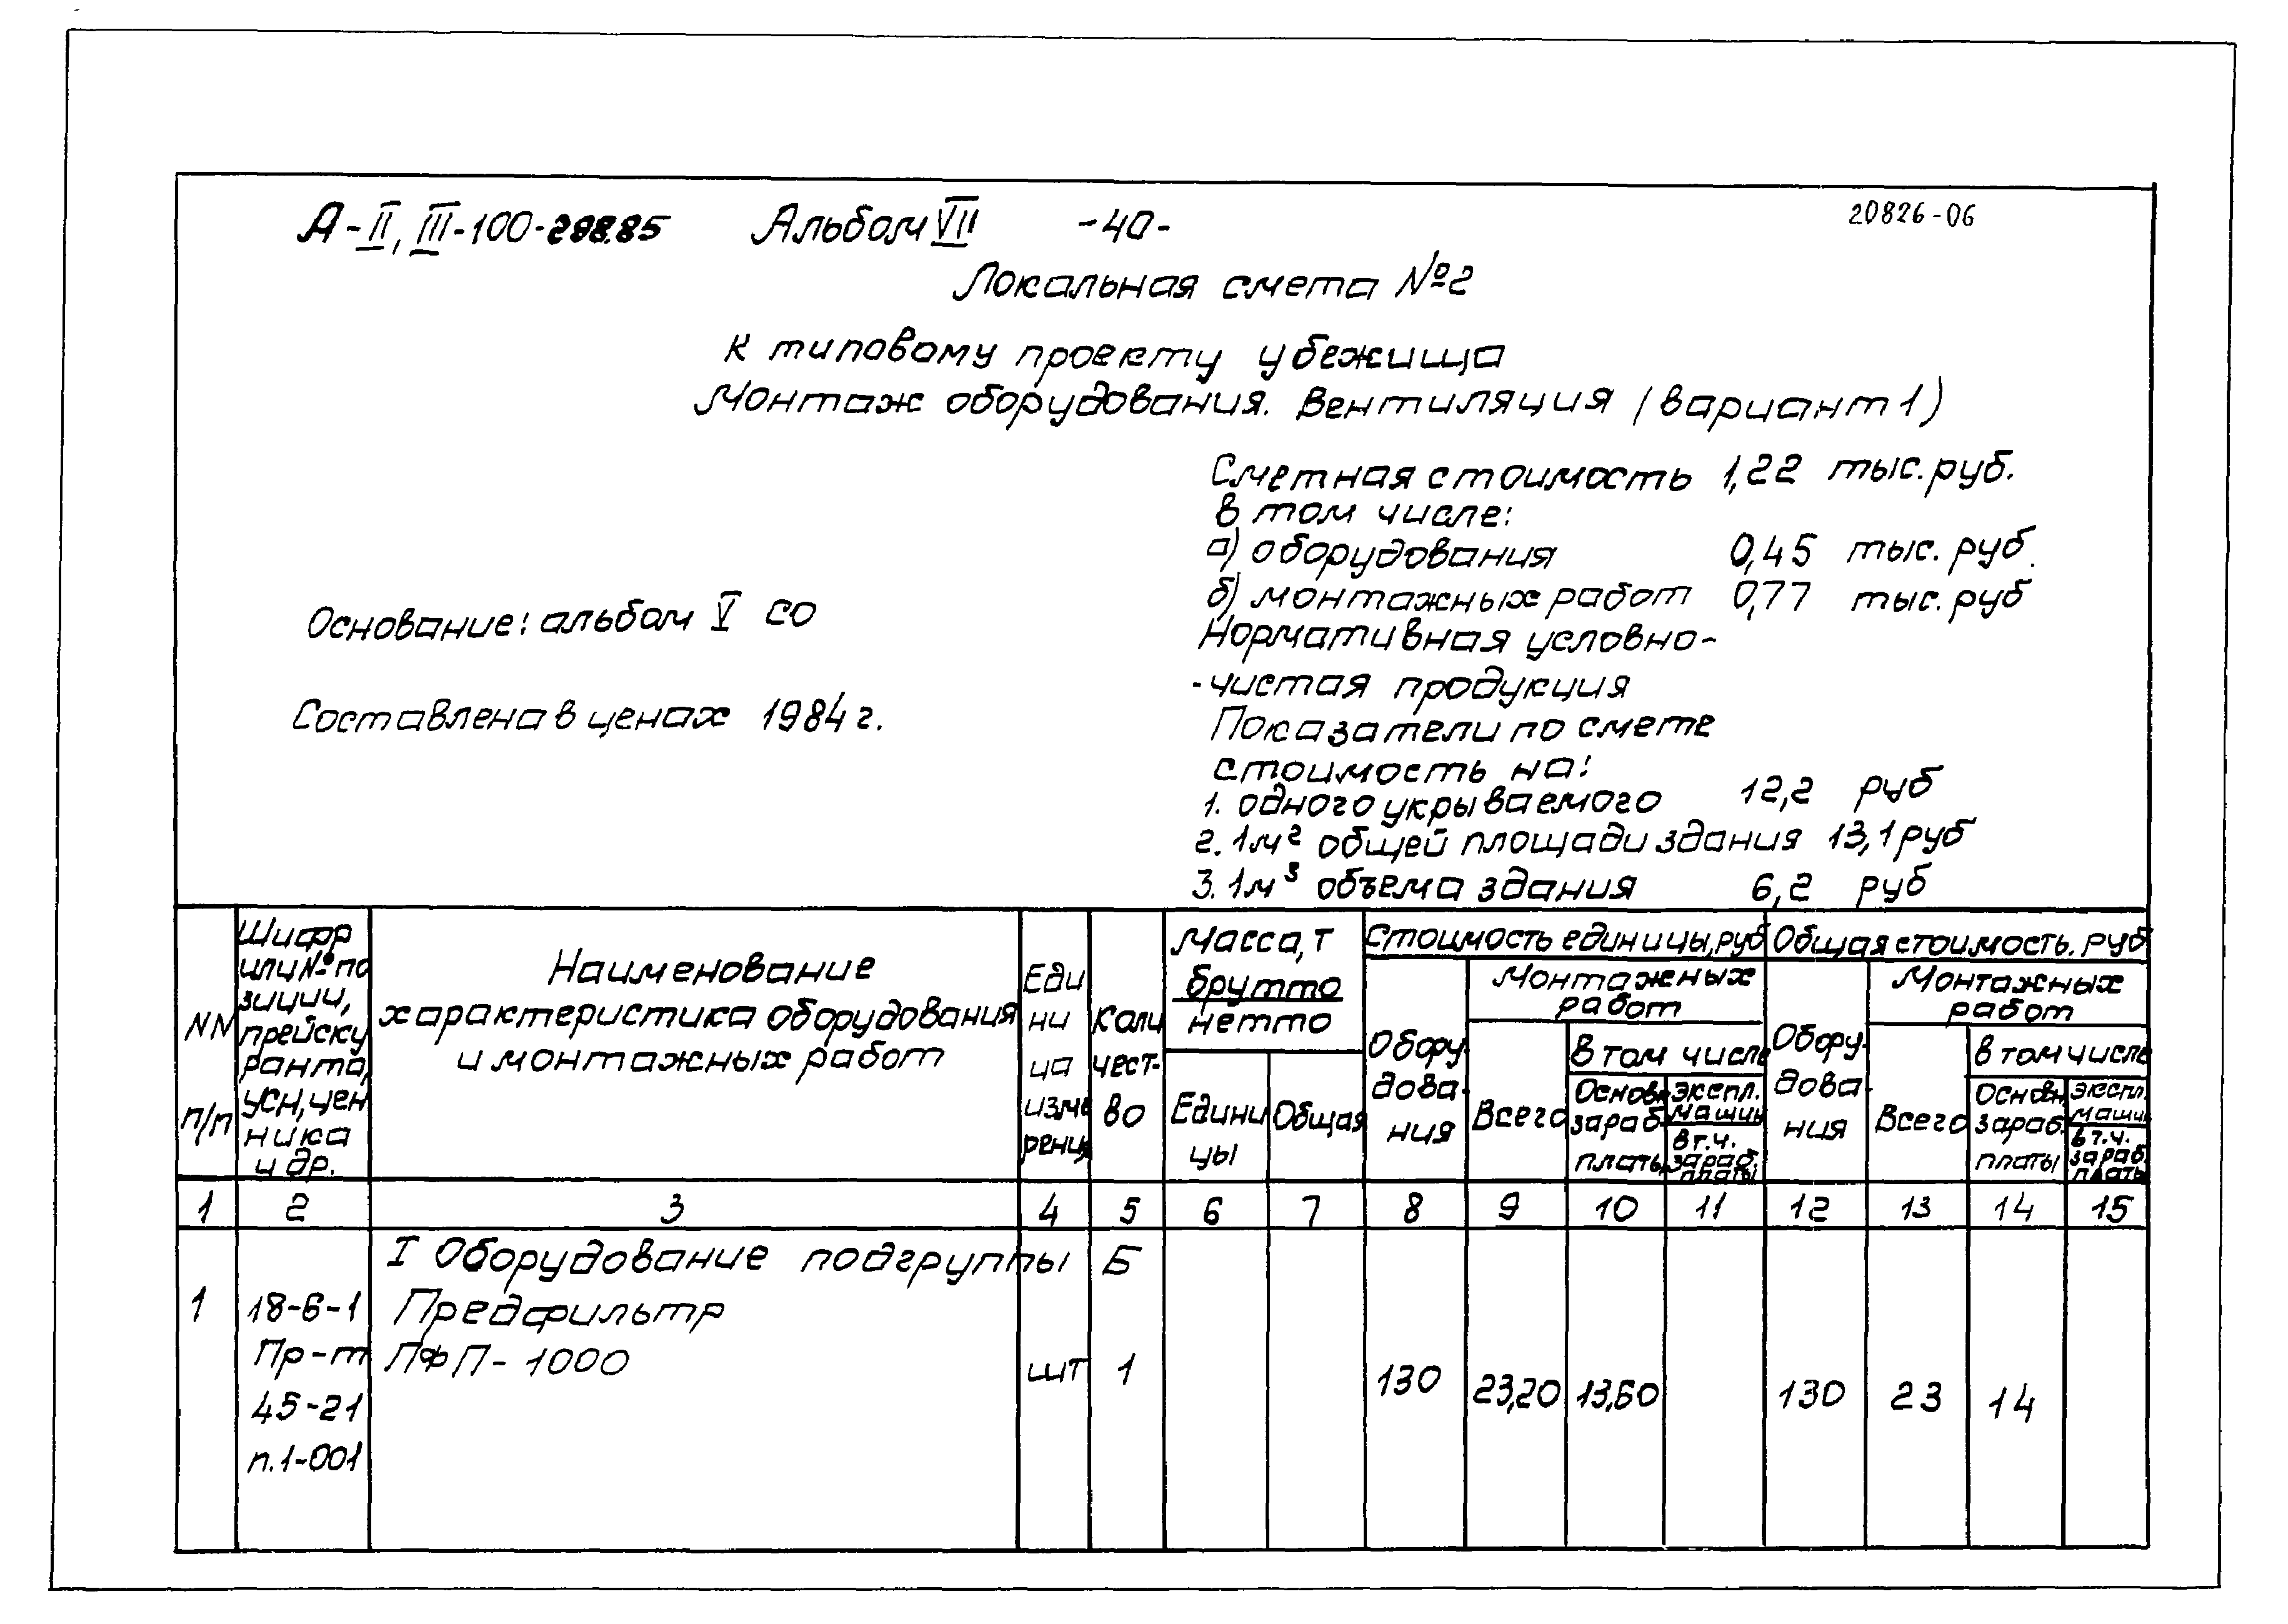 А-II, III-100-298.85 Альбом VII -40- 20826-06
Локальная смета №2
к типовому проекту убежища
Монтаж оборудования. Вентиляция (вариант 1)
Сметная стоимость 1,22 тыс. руб.
в том числе:
а) оборудования 0,45 тыс. руб.
б) монтажных работ 0,77 тыс. руб
Основание: альбом V СО
Нормативная условно-
-чистая продукция
Составлена в ценах 1984 г.
Показатели по смете
стоимость на:
1. одного укрываемого 12,2 руб
2. 1м² общей площади здания 13,1 руб
3. 1м³ объема здания 6,2 руб
NN
п/п
Шифр
или № по
зиции,
прейску
ранта,
УСН, цен
ника
и др.
Наименование
характеристика оборудования
и монтажных работ
Еди
ни
ца
изме
рения
Коли
чест-
во
Масса, т
брутто
нетто
Едини
цы
Общая
Стоимость единицы, руб
Обору-
дова-
ния
Монтажных
работ
Всего
в том числе
Основн.
зараб.
платы
экспл.
машин
в т.ч.
зараб.
платы
Общая стоимость. руб
Обору-
дова-
ния
Монтажных
работ
Всего
в том числе
Основн.
зараб.
платы
экспл.
машин
в т.ч.
зараб.
платы
1 2 3 4 5 6 7 8 9 10 11 12 13 14 15
I Оборудование подгруппы Б
1 18-6-1 Предфильтр
Пр-т ПФП-1000 шт 1 130 23,20 13,60 130 23 14
45-21
п.1-001